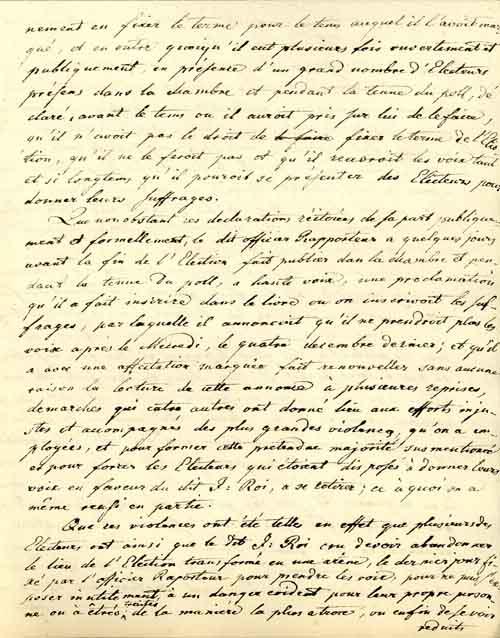 nement en fixer le terme pour le tems auquel il l'avoit mar-
qué, et en outre quoiqu'il eut plusieurs fois ouvertement et
publiquement, en présence d'un grand nombre d'Electeurs
présens dans la chambre et pendant la tenue du poll, dé
claré, avant le tems ou il auroit pris sur lui de le faire,
qu'il n'avoit pas le droit de le faire fixer le terme de l'Elec
tion, qu'il ne le feroit pas et qu'il recevroit les voix tant
et si longtems qu'il pouroit se présenter des Electeurs pour
donner leurs suffrages.
Que nonobstant ces déclarations réitérées de sa part, publique-
ment et formellement, le dit officier Rapporteur a quelques jours
avant la fin de l'Election fait publier dans la chambre et pen
dant la tenue du poll, a haute voix, une proclamation
qu'il a fait inscrire dans le livre ou on inscrivoit les suf
frages, par laquelle il annoncoit qu'il ne prendroit plus les
voix après le Mecredi, le quatre decembre dernier; et qu'il
a avec une affectation marquée fait renouveller sans aucune
raison la lecture de cette annonce à plusieures reprises,
demarches qui entre autres ont donné lieu aux efforts inju
stes et accompagnés des plus grandes violences, qu'on a em
ployées, et pour former cette prétendue majorité susmentionnée
et pour forcer les Electeurs qui étoient disposés à donner leurs
voix en faveur du dit J: Roi, a se retirer; ce à quoi on a
même reussi en partie.
Que ces violences ont été telles en effet que plusieurs des
Electeurs ont ainsi que le dit J: Roi cru devoir abandonner
le lieu de l'Election transformé en une arène, le dernier jour fi
xé par l'officier Raporteur pour prendre les voix, pour ne pas s'ex
poser inutilement, à un danger évident pour leur propre person
ne ou à être traités de la manière la plus atroce, ou enfin de se voir
reduits